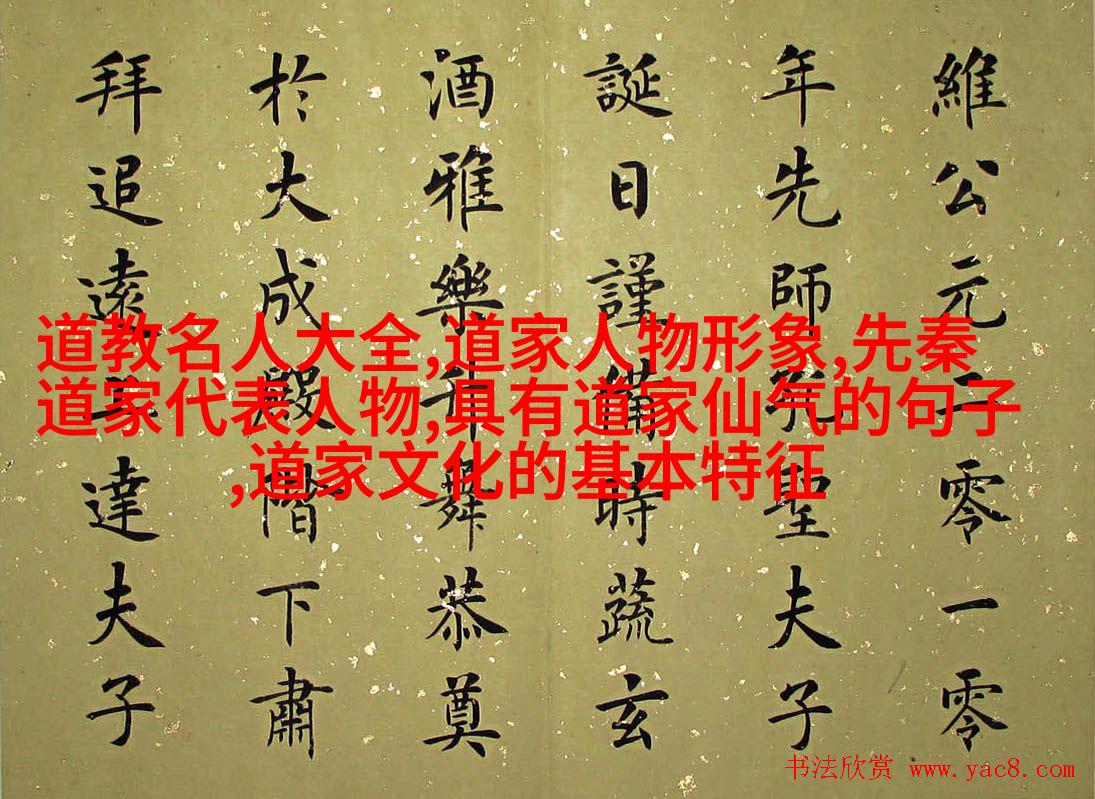 維公元二零一零
年先師孔聖夫子
誕日謹備時蔬玄
酒雅樂舞恭奠
於大成殿階下肅
拜追遠達夫子
道教名人大全,道家人物形象,先秦
道家代表人物,具有道家仙气的句子
,道家文化的基本特征
书法欣赏 www.yac8.com